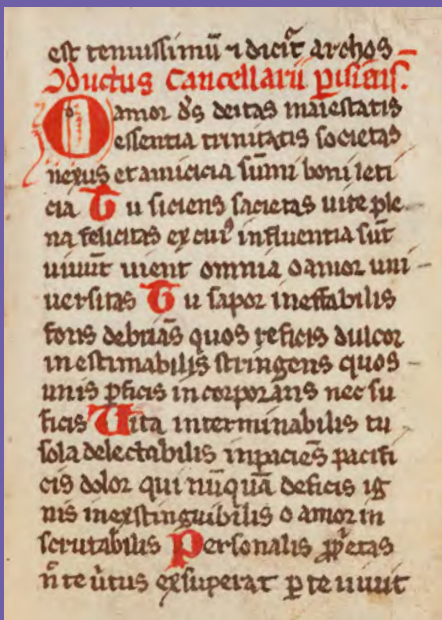 est tenuissimū ⁊ dicit̄ archos
Ɔductus Cancellarii ꝑisiensis.
O amor d̄s deitas maiestatis
essentia trinitatis societas
nexus et amicicia sūmi boni leti
cia Tu siciens sacietas uite ple
na felicitas ex cuiꝰ influentia sūt
uiuūt uient omnia o amor uni
uersitas Tu sapor ineffabilis
foris debriās quos reficis dulcor
inestimabilis stringens quos
unis ꝑficis incorporāris nec su
ficis Uita interminabilis tu
sola delectabilis inpaciēs pacifi
cis dolor qui nūquā deficis ig
nis inexstinguibilis o amor in
scrutabilis Personalis ꝓpͥetas
n̄ te ūtus exsuperat ꝑ te uiuit